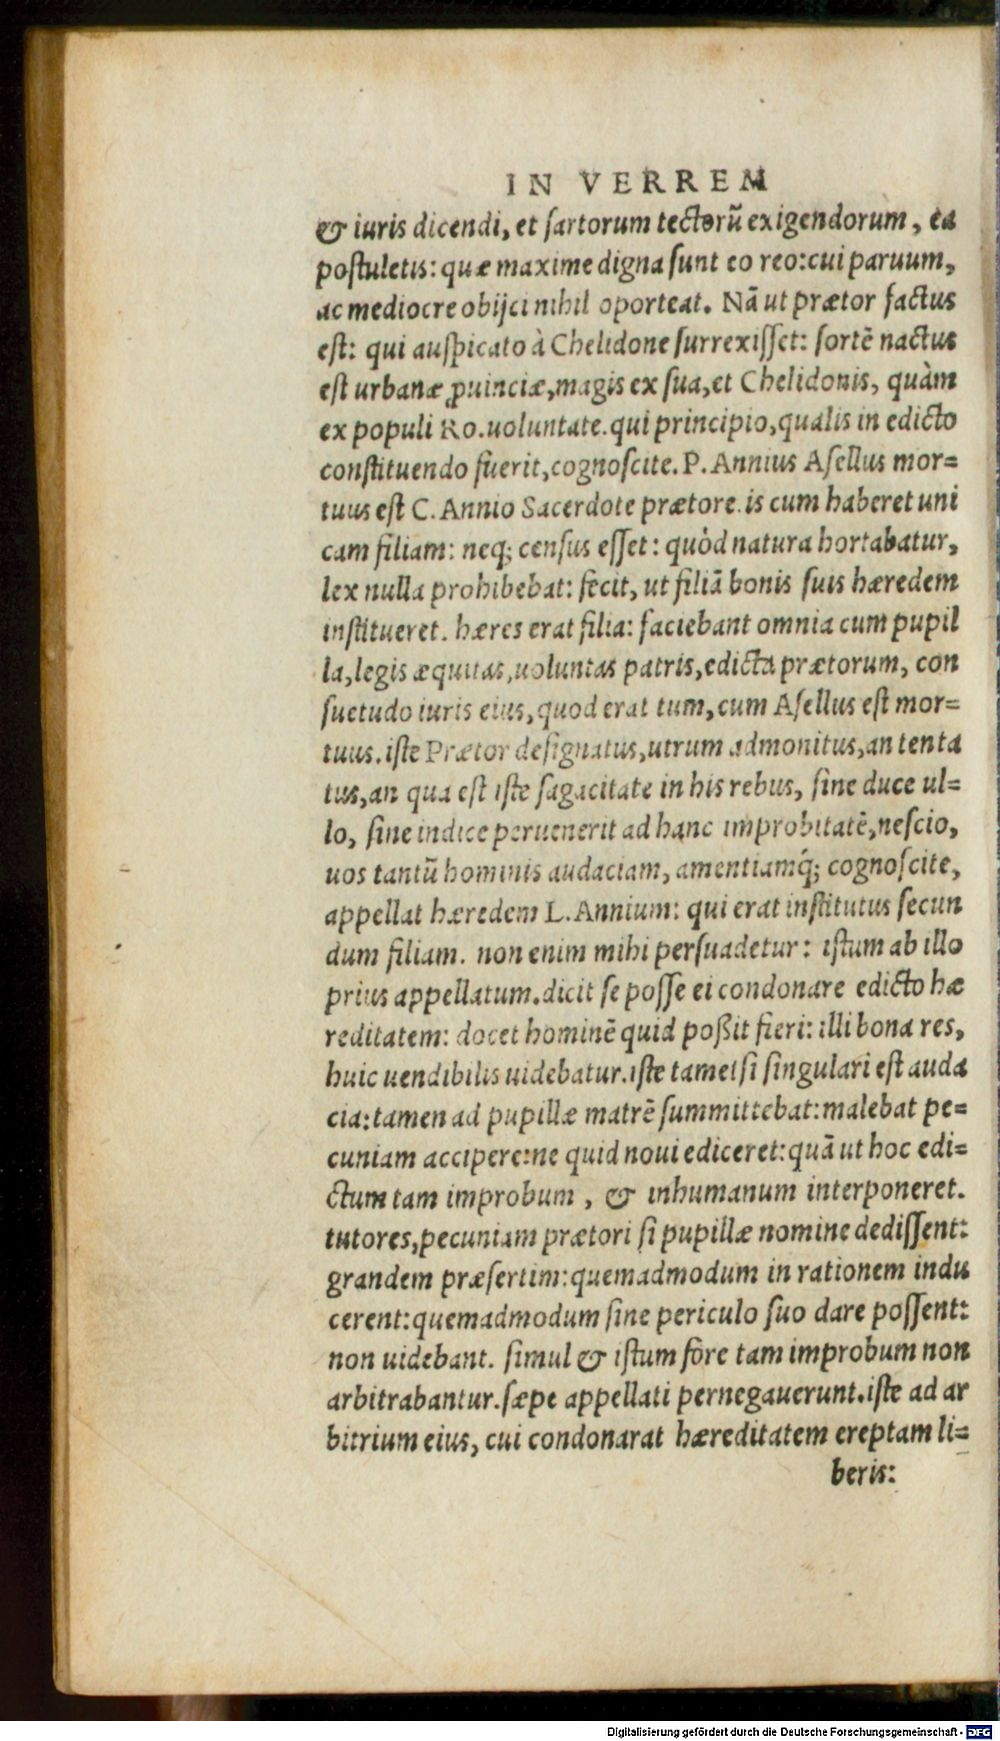 IN VERREM
& iuris dicendi, et sartorum tectorũ exigendorum, ea
postuletis: quæ maxime digna sunt eo reo: cui paruum,
ac mediocre obijci nihil oporteat. Nã ut prætor factus
est: qui auspicato à Chelidone surrexisset: sortẽ nactus
est urbanæ ꝓuinciæ, magis ex sua, et Chelidonis, quàm
ex populi Ro. uoluntate. qui principio, qualis in edicto
constituendo fuerit, cognoscite. P. Annius Asellus mor=
tuus est C. Annio Sacerdote prætore. is cum haberet uni
cam filiam: neq; census esset: quòd natura hortabatur,
lex nulla prohibebat: fecit, ut filiã bonis suis hæredem
institueret. hæres erat filia: faciebant omnia cum pupil
la, legis æquitas, uoluntas patris, edicta prætorum, con
suetudo iuris eius, quod erat tum, cum Asellus est mor=
tuus. iste Prætor designatus, utrum admonitus, an tenta
tus, an qua est iste sagacitate in his rebus, sine duce ul=
lo, sine indice peruenerit ad hanc improbitatẽ, nescio,
uos tantũ hominis audaciam, amentiamq́; cognoscite,
appellat hæredem L. Annium: qui erat institutus secun
dum filiam. non enim mihi persuadetur: istum ab illo
prius appellatum. dicit se posse ei condonare edicto hæ
reditatem: docet hominẽ quid poßit fieri: illi bona res,
huic uendibilis uidebatur. iste tametsi singulari est auda
cia: tamen ad pupillæ matrẽ summittebat: malebat pe=
cuniam accipere: ne quid noui ediceret: quã ut hoc edi=
ctum tam improbum, & inhumanum interponeret.
tutores, pecuniam prætori si pupillæ nomine dedissent:
grandem præsertim: quemadmodum in rationem indu
cerent: quemadmodum sine periculo suo dare possent:
non uidebant. simul & istum fore tam improbum non
arbitrabantur. sæpe appellati pernegauerunt. iste ad ar
bitrium eius, cui condonarat hæreditatem ereptam li=
beris:
Digitalisierung gefördert durch die Deutsche Forschungsgemeinschaft - DFG